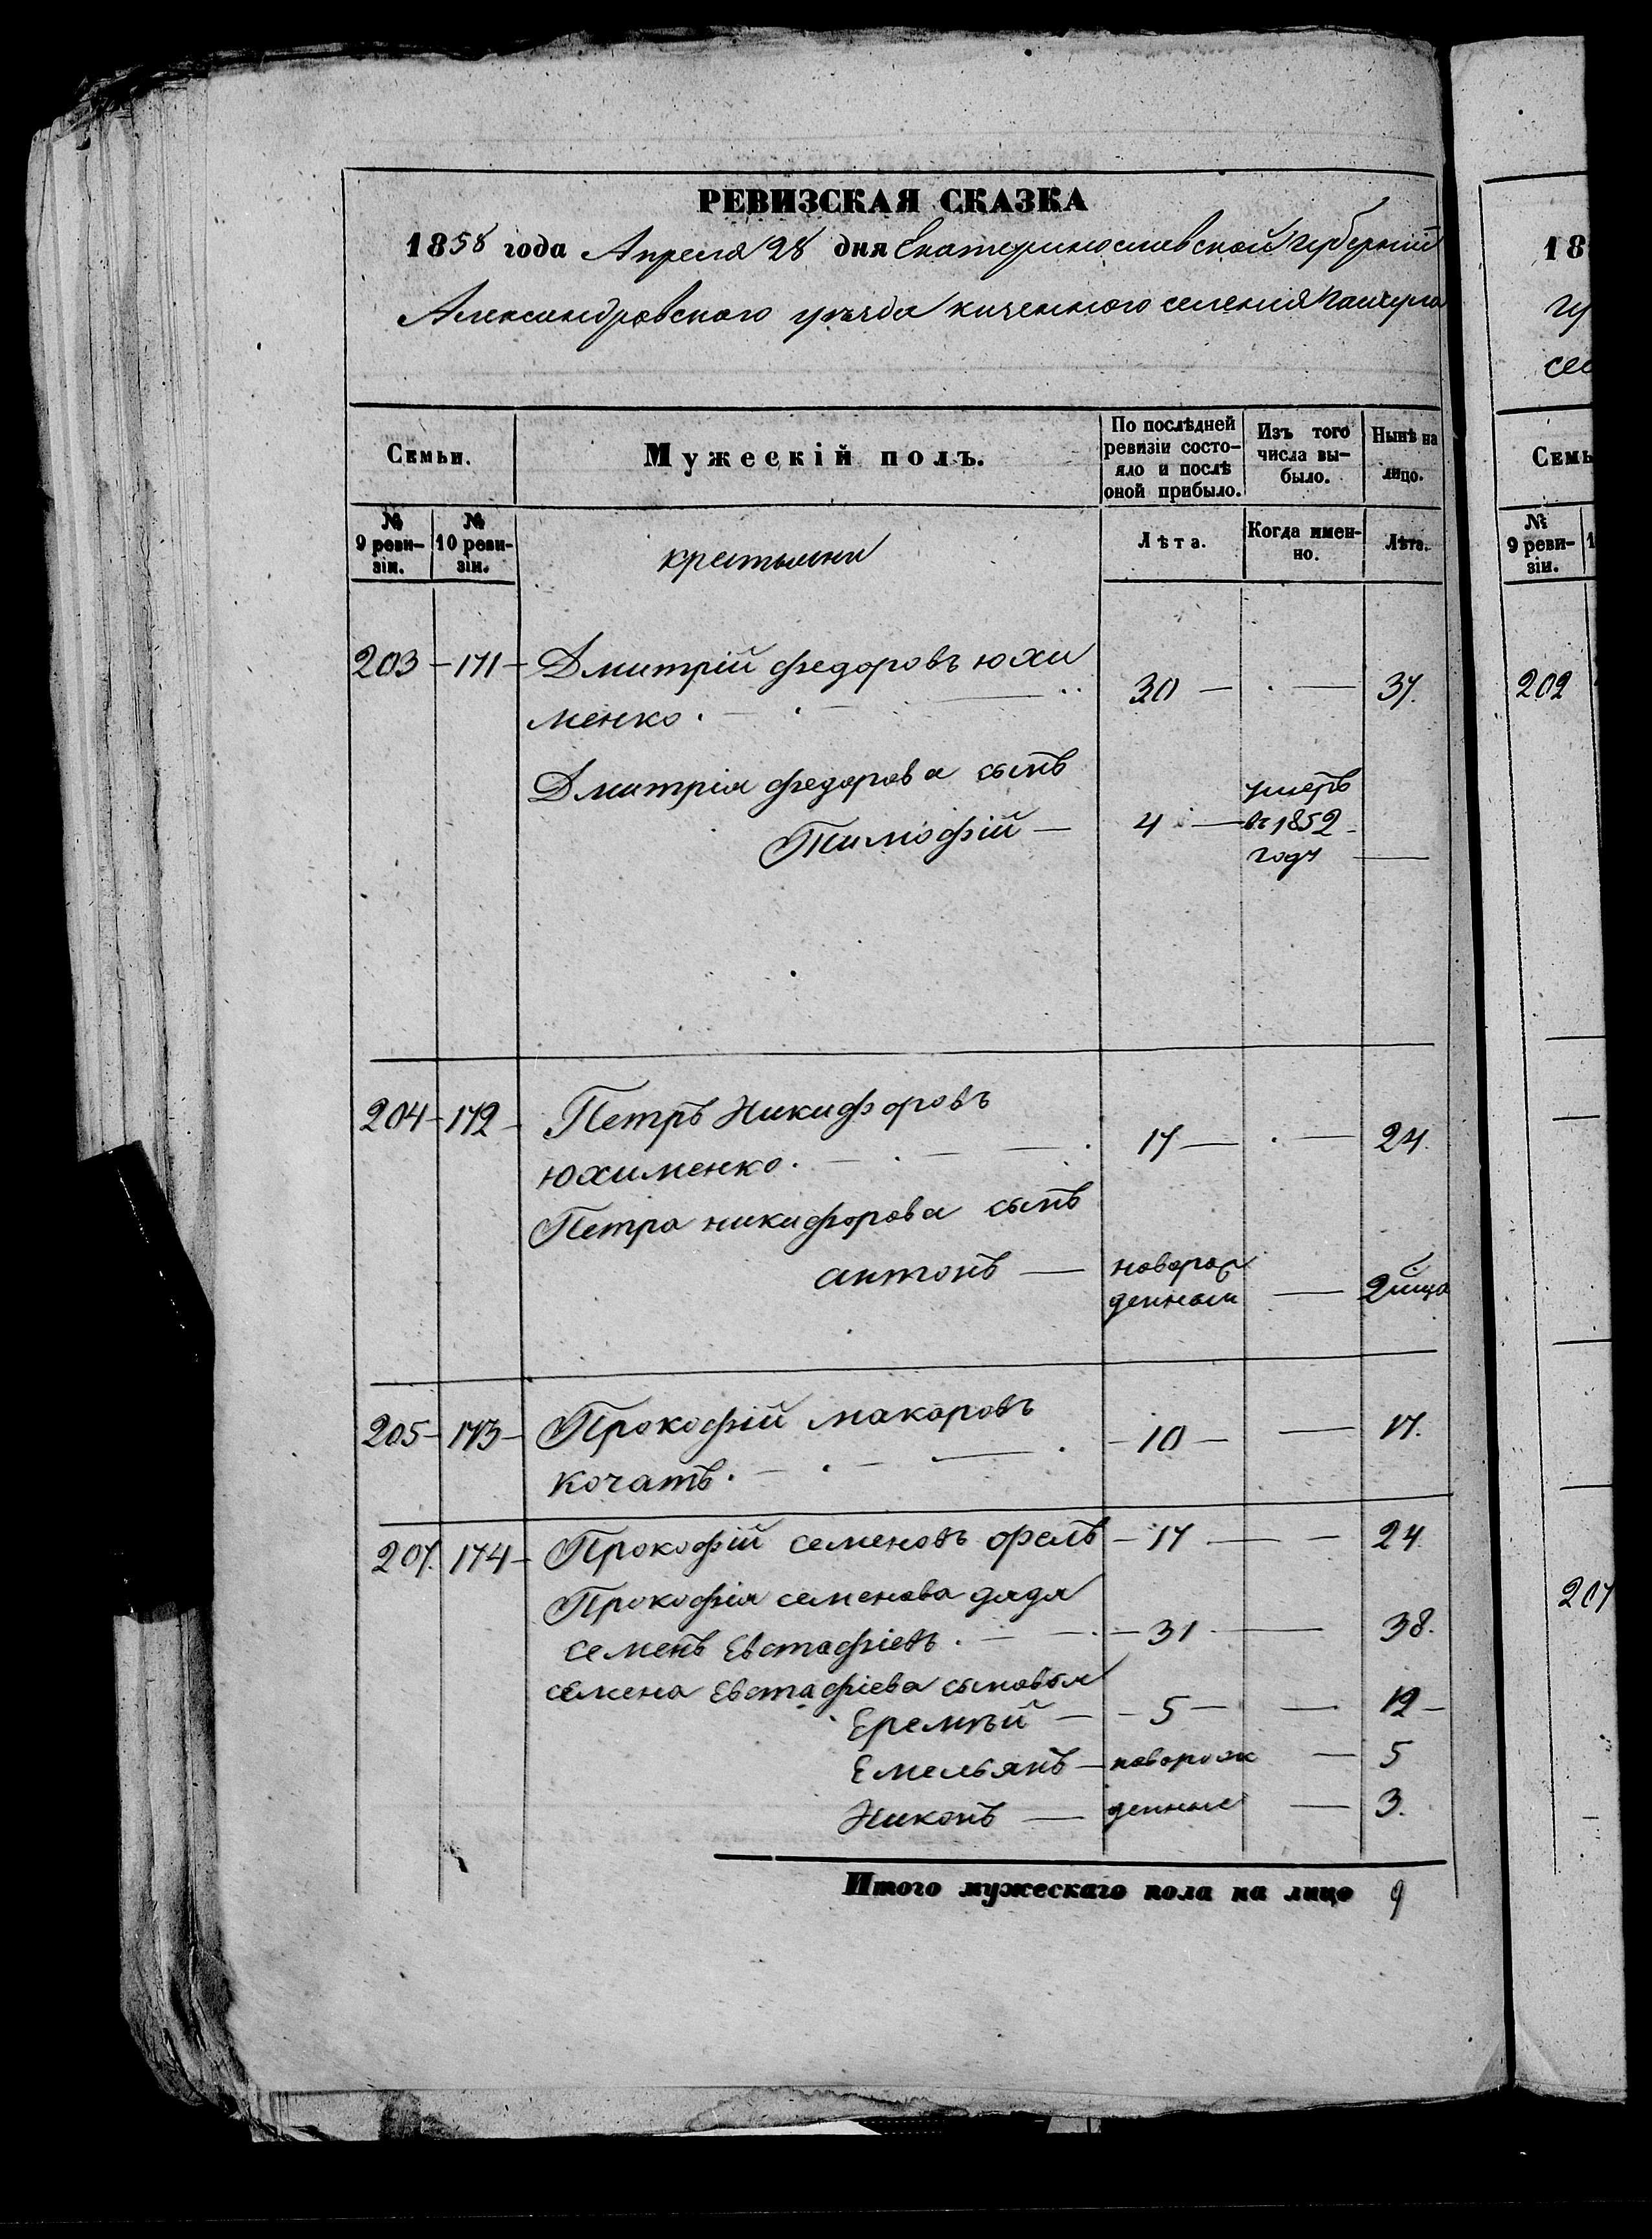 РЕВИЗСКАЯ СКАЗКА
1858 года Апреля 28 дня Екатеринославской Губерніи
Александровского уѣзда казенного селения Гайчула
Семьи.
Мужескій полъ.
По послѣдней ревизіи состо-
яло и послѣ
оной прибыло.
Изъ того
числа вы-
было.
Нынѣ на
лицо.
№
9 реви-
зіи.
№
10 реви-
зіи.
крестьяни
Лѣта.
Когда имен-
но.
Лѣта.
203 – 171 – Дмитрій Федоровъ юхи
менко. 30 – – 37.
Дмитрія Федорова сынъ
Тимофій – 4 – умеръ
въ 1852
году –
204 – 172 – Петръ Никифоровъ
юхименко. 17 – – 24.
Петра никифорова сынъ
антонъ – новорож
денной – 2
205 – 173 – Прокофій макаровъ
кочатъ. – 10 – – 17.
207. 174 – Прокофій семеновъ орелъ – 17 – – 24.
Прокофія семенова дядя
семенъ Евстафіевъ. – 31 – 38.
семена Евстафіева сыновья
Еремѣй – 5 – – 12 –
Емельянъ – новорож – 5
Никонъ – денные – 3.
Итого мужескаго пола на лицо 9
18
гу
сел
Семь
№
9 реви-
зіи.
1
202
207